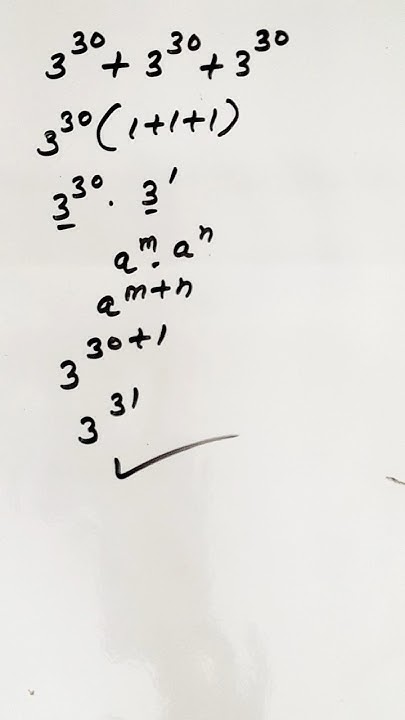 3³⁰ + 3³⁰ + 3³⁰
3³⁰ (1+1+1)
3³⁰ · 3¹
aᵐ · aⁿ
aᵐ⁺ⁿ
3³⁰⁺¹
3³¹